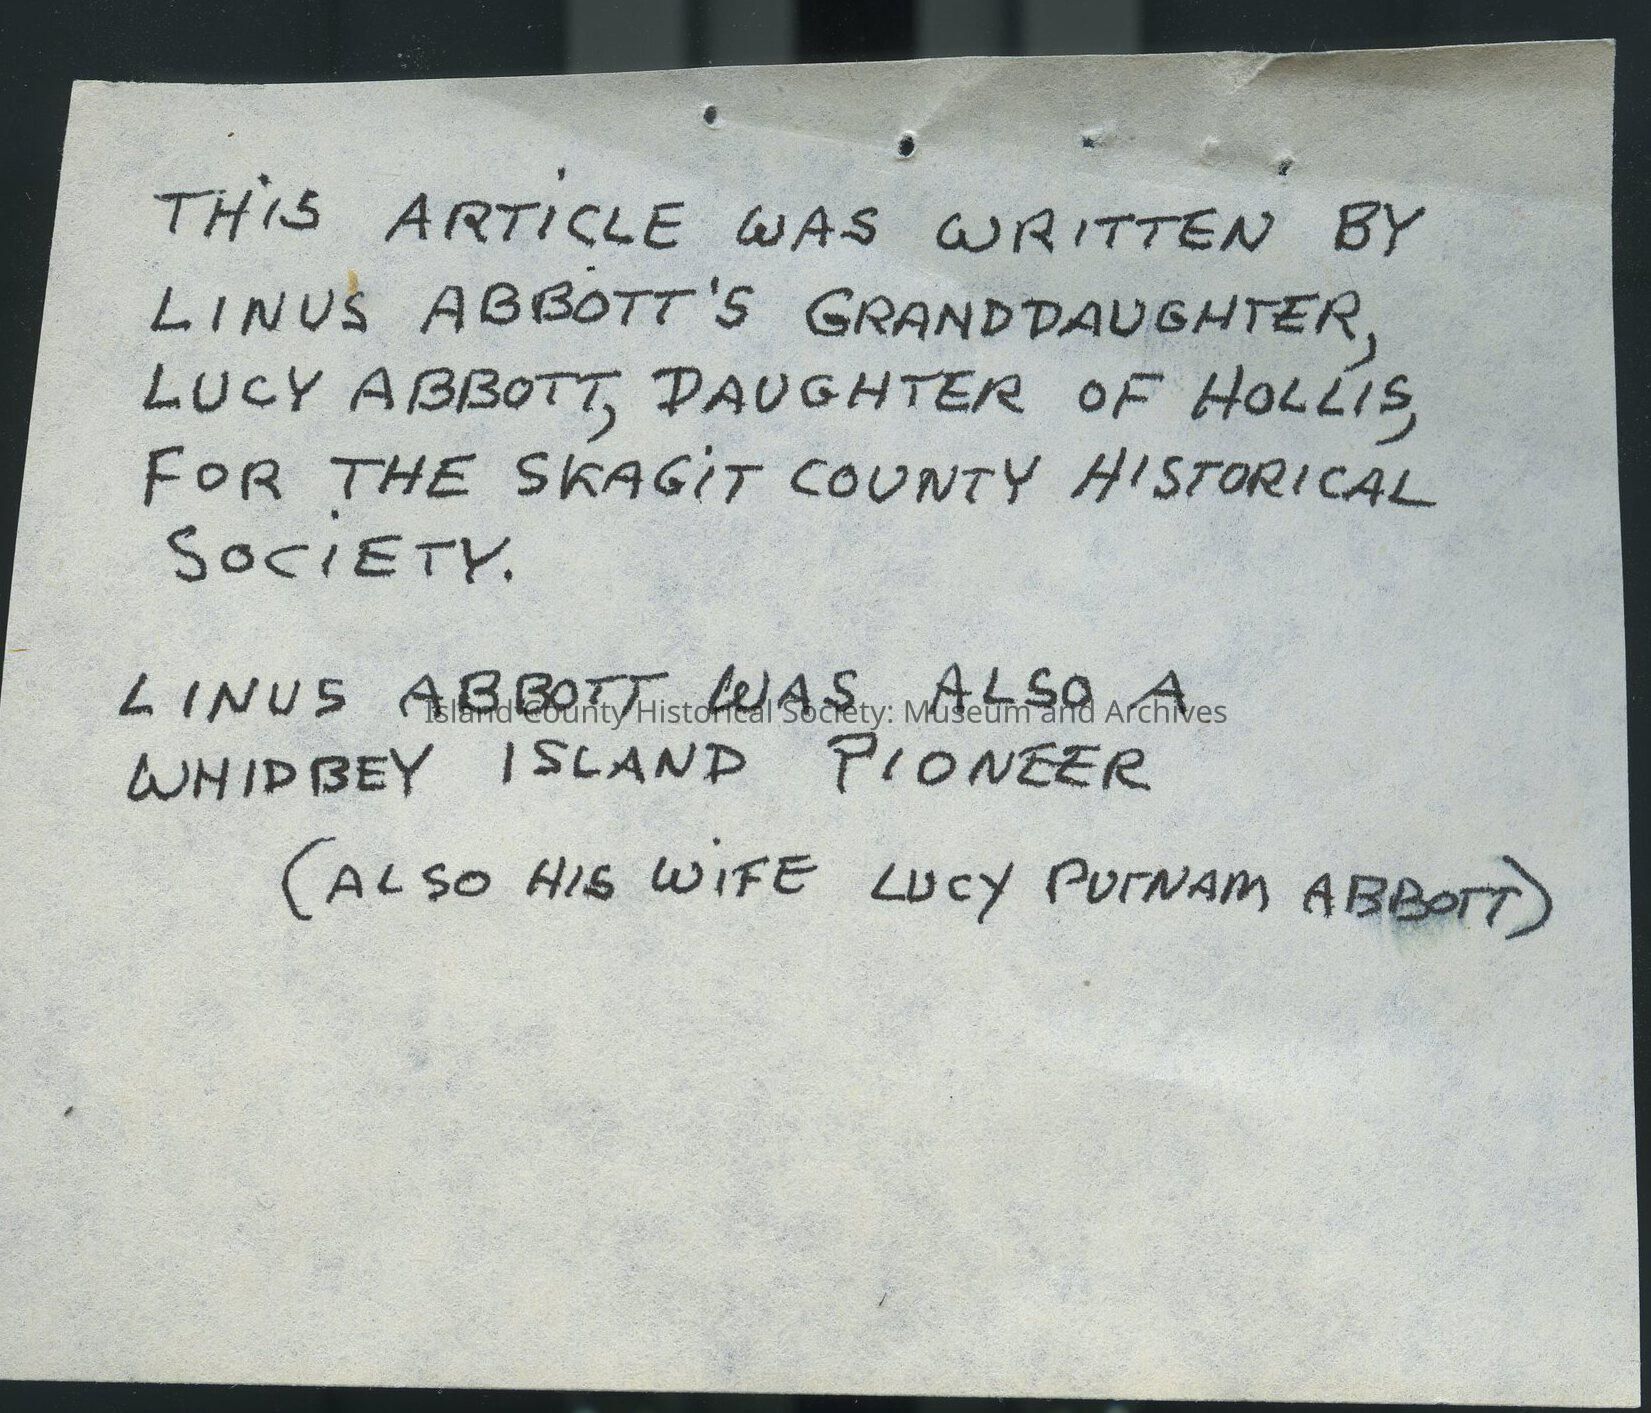 THIS ARTICLE WAS WRITTEN BY
LINUS ABBOTT'S GRANDDAUGHTER,
LUCY ABBOTT, DAUGHTER OF HOLLIS,
FOR THE SKAGIT COUNTY HISTORICAL
SOCIETY.
LINUS ABBOTT WAS ALSO A
Island County Historical Society: Museum and Archives
WHIDBEY ISLAND PIONEER
(ALSO HIS WIFE LUCY PUTNAM ABBOTT)